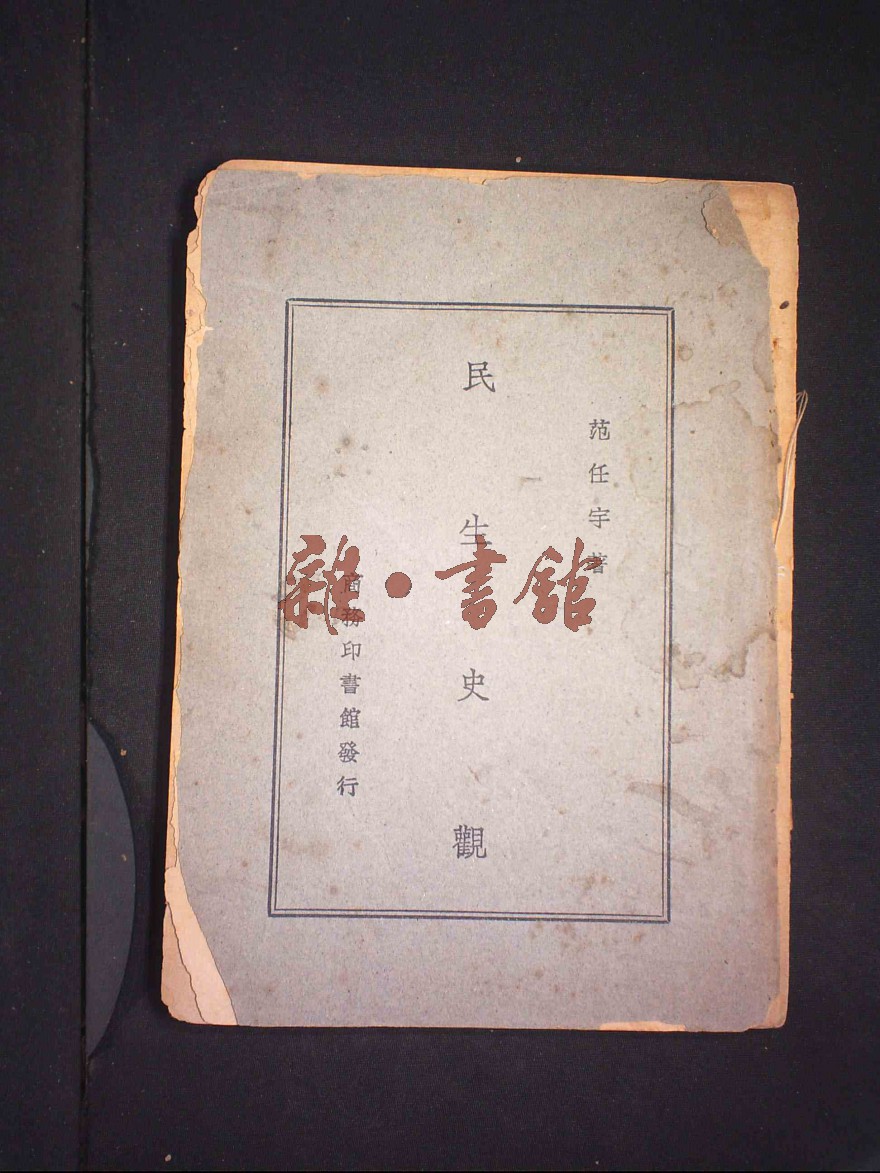 范任宇著
民生史觀
商務印書館發行
雜·書館